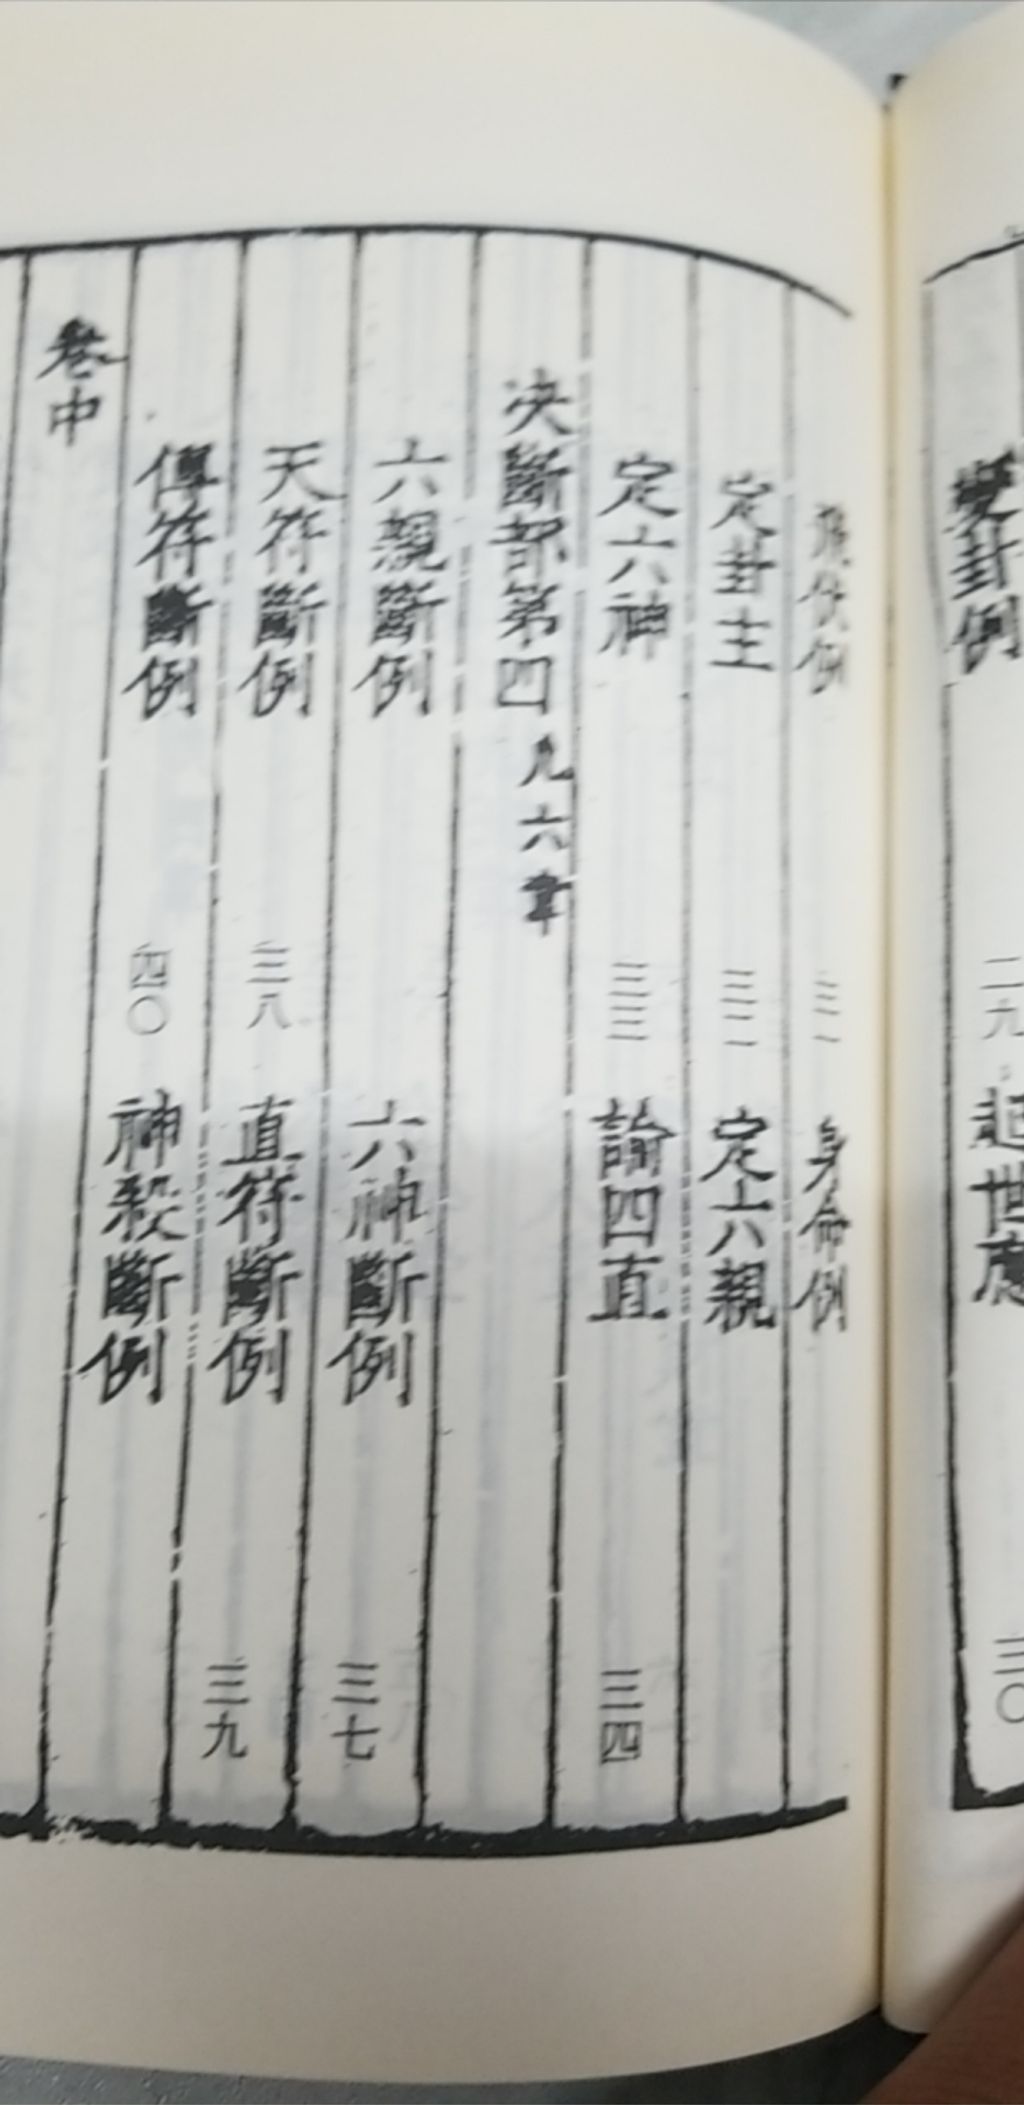 變卦例 二九 起世應 三〇
飛伏例 三一 身命例
定卦主 三二 定六親
定六神 三三 論四直 三四
決斷部第四 凡六章
六親斷例 六神斷例 三七
天符斷例 三八 直符斷例 三九
傳符斷例 四〇 神殺斷例
卷中